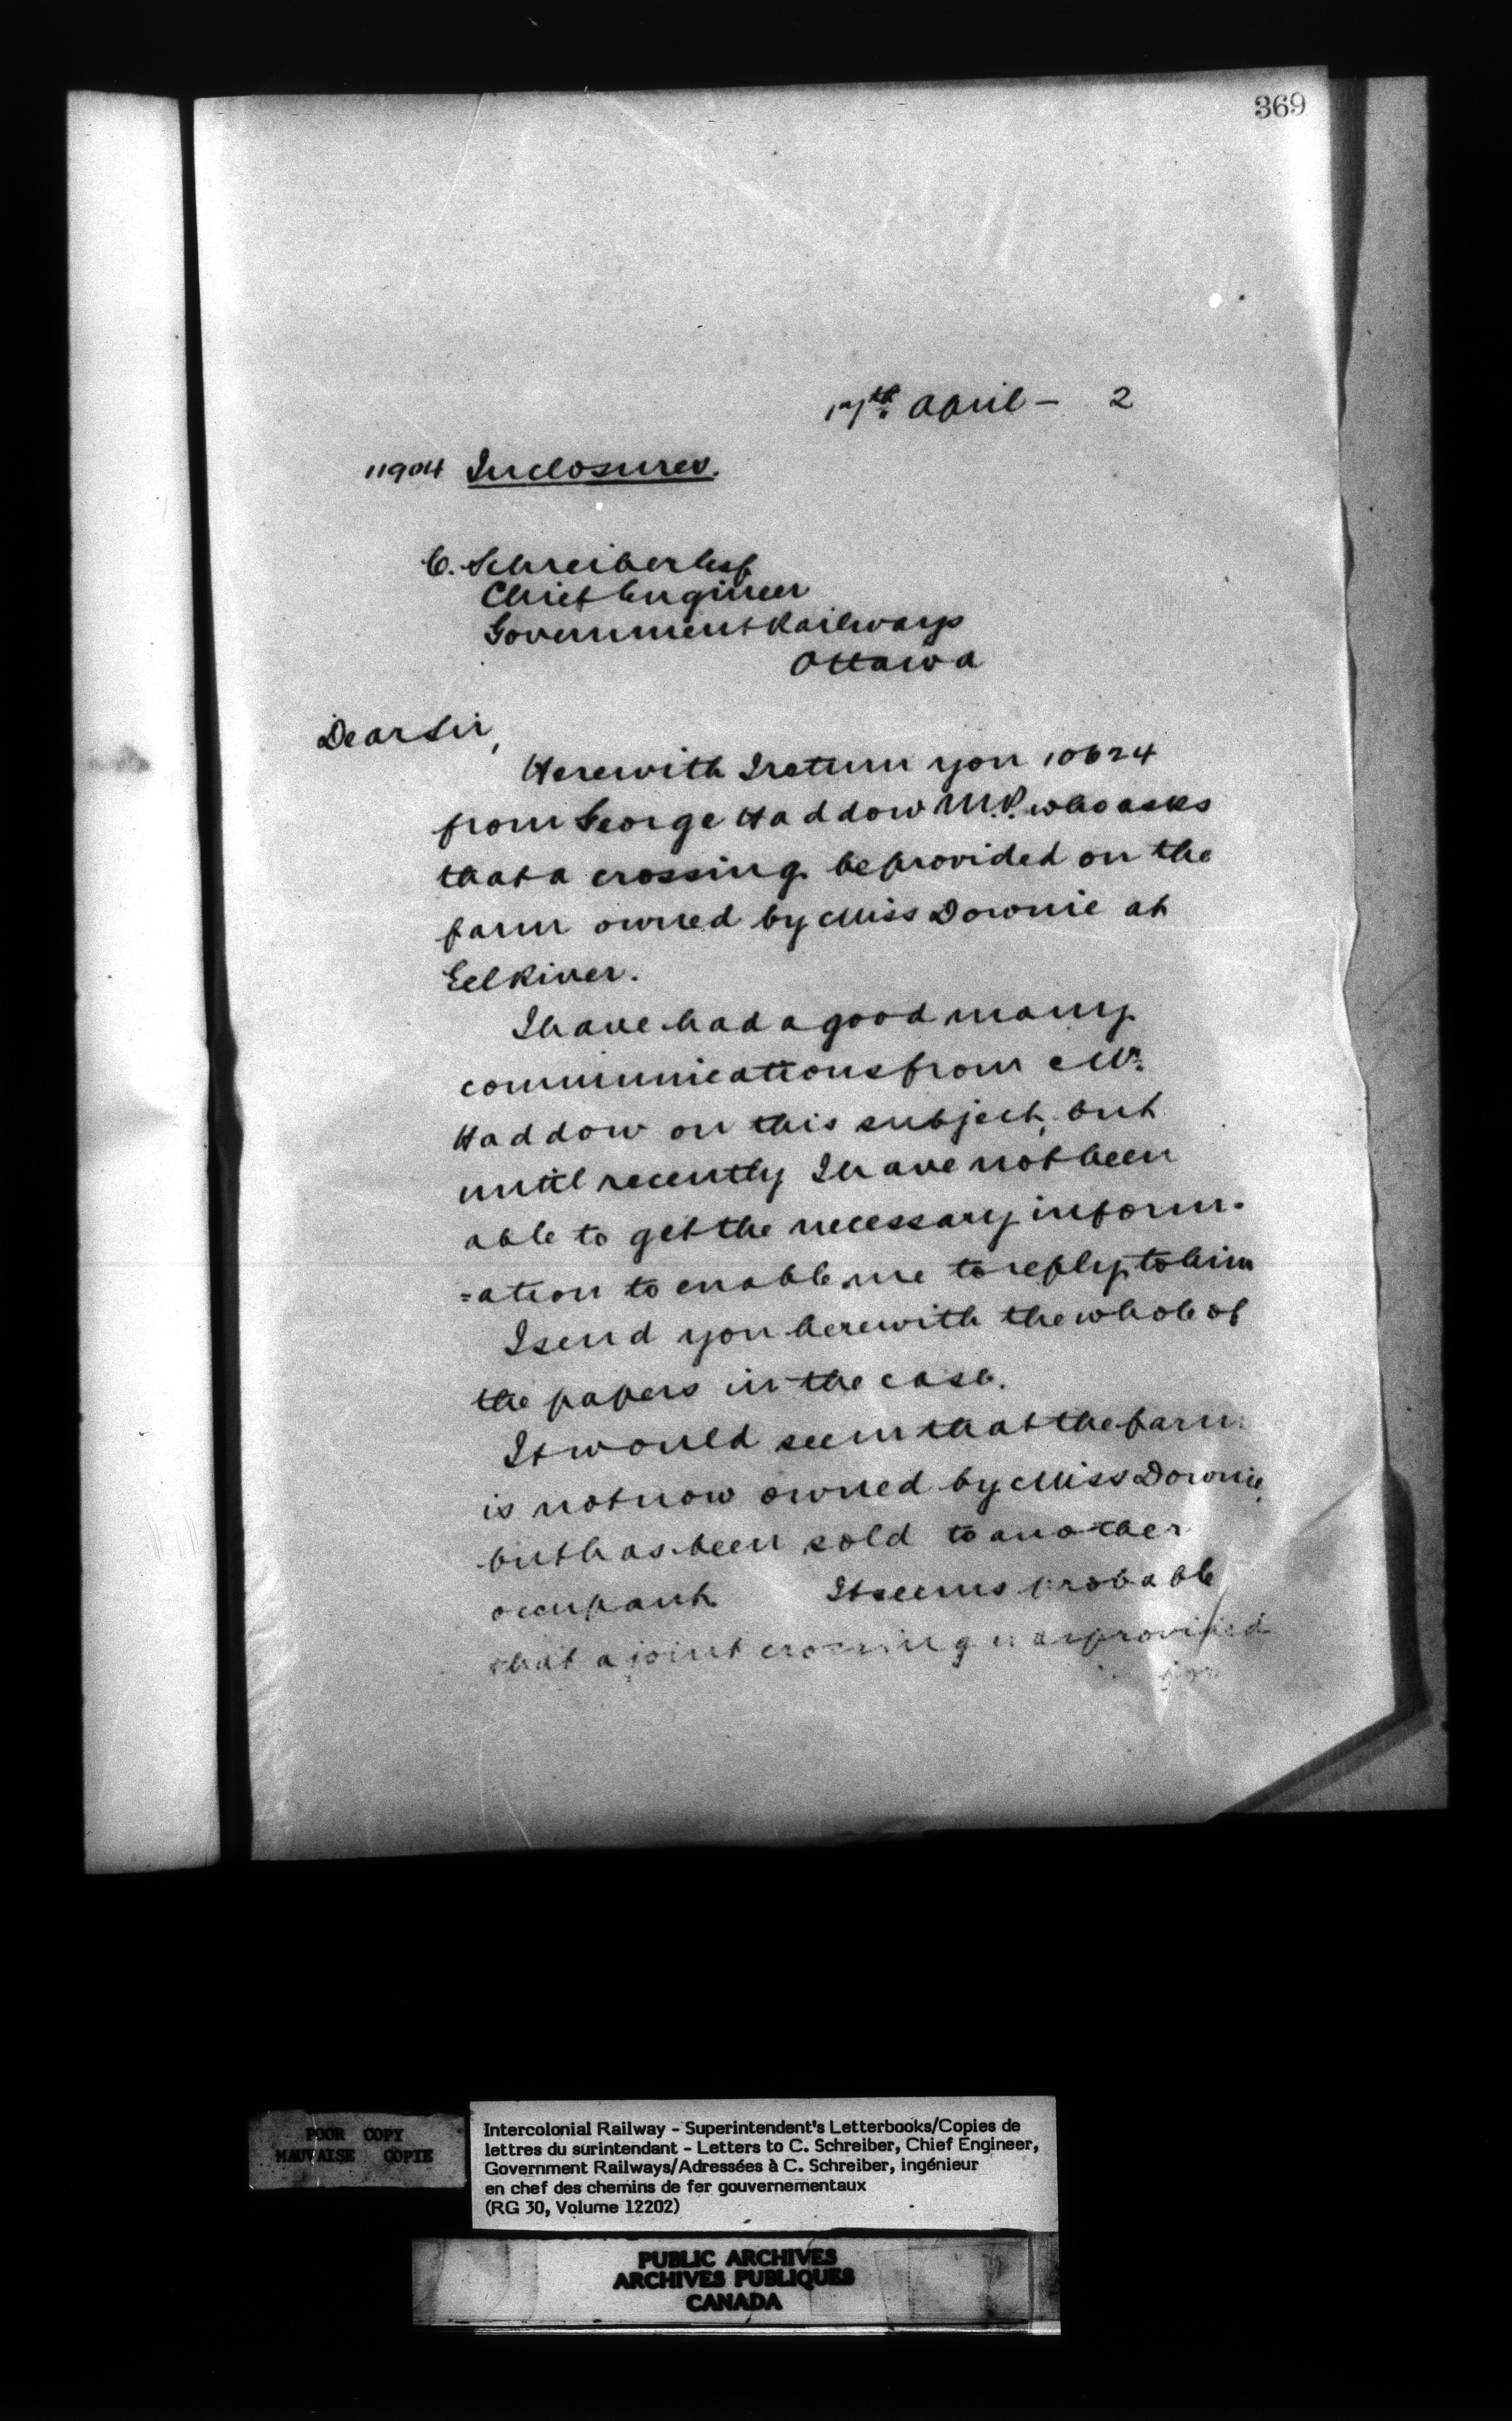 369
17th. April - 2
11904 Inclosures.
C. Schreiber Esq
Chief Engineer
Government Railways
Ottawa
Dear Sir,
Herewith I return you 10624
from George Haddow M.P. who asks
that a crossing be provided on the
farm owned by Miss Downie at
Eel River.
I have had a good many
communications from Mr.
Haddow on this subject, but
until recently I have not been
able to get the necessary inform-
=ation to enable me to reply to him
I send you herewith the whole of
the papers in the case.
It would seem that the farm
is not now owned by Miss Downie,
but has been sold to another
occupant. It seems probable
that a joint crossing was provided
for
POOR COPY
MAUVAISE COPIE
Intercolonial Railway - Superintendent's Letterbooks/Copies de
lettres du surintendant - Letters to C. Schreiber, Chief Engineer,
Government Railways/Adressées à C. Schreiber, ingénieur
en chef des chemins de fer gouvernementaux
(RG 30, Volume 12202)
PUBLIC ARCHIVES
ARCHIVES PUBLIQUES
CANADA